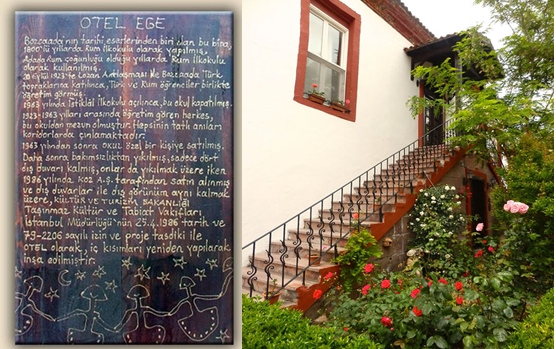 OTEL EGE
Bozcaada'nın tarihi eserlerinden biri olan bu bina,
1800'lü yıllarda Rum ilkokulu olarak yapılmış,
Adada Rum çoğunluğu olduğu yıllarda Rum ilkokulu
olarak kullanılmış.
20 Eylül 1923'te Lozan Antlaşması ile Bozcaada Türk
topraklarına katılınca, Türk ve Rum öğrenciler birlikte
öğretim görmüş.
1963 yılında İstiklal ilkokulu açılınca, bu okul kapatılmış.
1923-1963 yılları arasında öğretim gören herkes,
bu okuldan mezun olmuştur. Hepsinin tatlı anıları
koridorlarda çınlamaktadır.
1963 yılından sonra okul özel bir kişiye satılmış.
Daha sonra bakımsızlıktan yıkılmış, sadece dört
dış duvarı kalmış, onlar da yıkılmak üzere iken
1986 yılında KOZ A.Ş. tarafından satın alınmış
ve dış duvarlar ile dış görünüm aynı kalmak
üzere, KÜLTÜR VE TURİZM BAKANLIĞI
Taşınmaz Kültür ve Tabiat Vakıfları
İstanbul Müdürlüğü'nün 25.4.1986 tarih ve
79-2206 sayılı izin ve proje tasdiki ile
OTEL olarak, iç kısımları yeniden yapılarak
inşa edilmiştir.